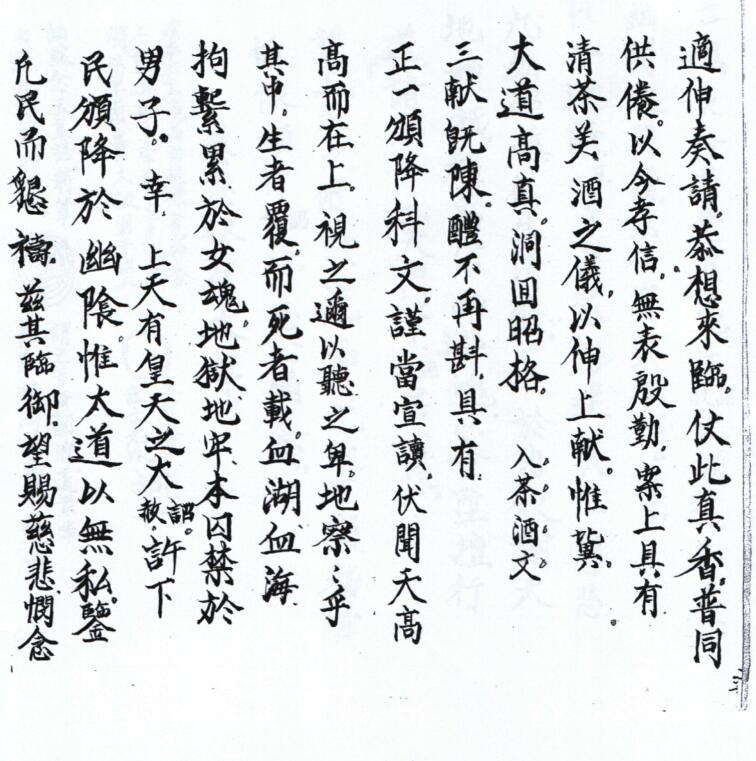 適伸奏請。恭想來臨。仗此真香。普同
供養。以今孝信。無表殷勤。案上具有
清茶美酒之儀。以伸上献。惟冀。
大道高真。洞回昭格。入茶酒文。
三献既陳。醴不再斟。具有
正一頒降科文。謹當宣讀。伏聞天高
高而在上。視之邇以聽之卑。地察々乎
其中。生者覆。而死者載。血湖血海
拘繫累於女魂。地獄地牢。本囚禁於
男子。幸 上天有皇天之大詔赦。許下
民頒降於幽陰。惟太道以無私。鑒
凢民而懇禱。茲其臨御。望賜慈悲。憫念